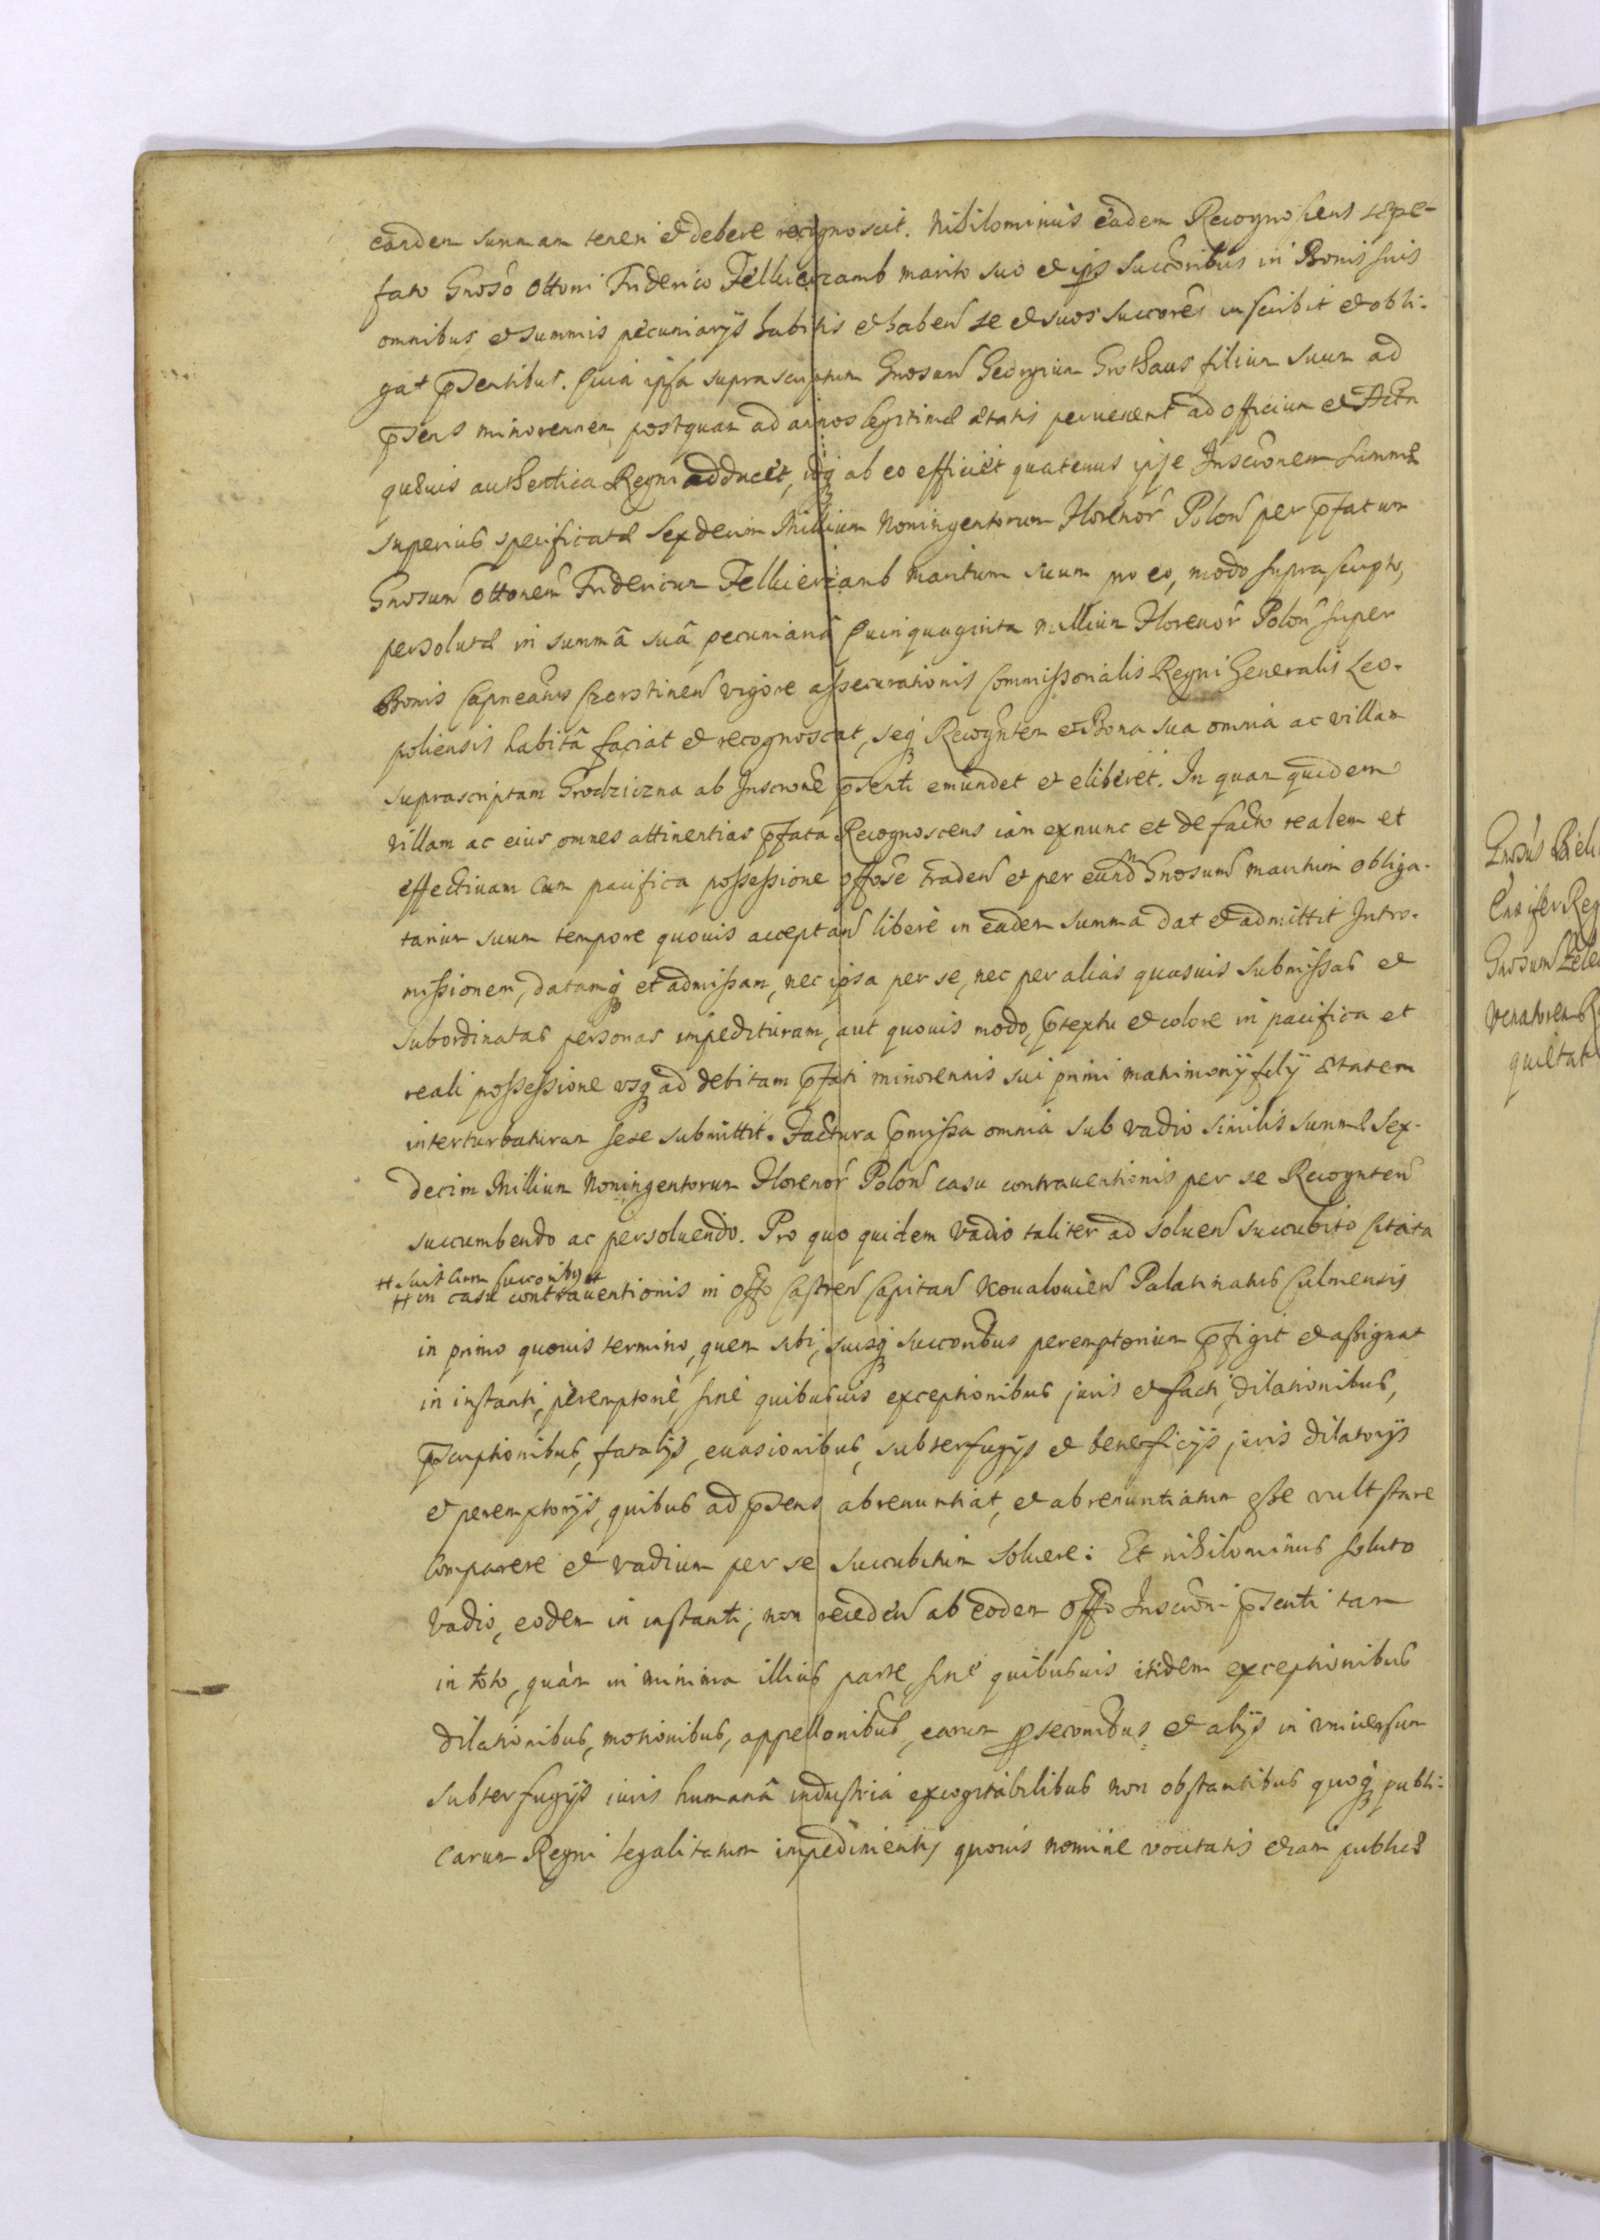 eandem summam teneri et debere recognoscit. Nihilominus eadem Recognoscens sepe-
fato Gnoso Ottoni Friderico Felkierzamb marito suo et ips succoribus in Bonis suis
omnibus et summis pecuniarijs habitis et haben se et suos succores inscribit et obli-
gat pntibus. Quia ipsa suprascriptum Gnosum Georgium Grothaus filium suum ad
psens minorennem postquam ad annos legitimæ ætatis pervenerit ad officium et Acta
quævis authentica Regni adducet, idq ab eo efficiet quatenus ipse Inscronem summæ
superius specificatæ Sexdecim Millium Noningentorum Florenor Polon per pfatum
Gnosum Ottonem Fridericum Felkierzamb maritum suum pro eo, modo suprascripto,
persolutæ in summâ suâ pecuniariâ Quinquaginta millium Florenor Polon super
Bonis Capneatus Czorstinen vigore assecurationis Commissorialis Regni Generalis Leo-
poliensis habitâ faciat et recognoscat, seq Recognten et Bona sua omnia ac villam
suprascriptam Grodziczna ab Inscrone psenti emundet et eliberet. In quam quidem
villam ac eius omnes attinentias pfata Recognoscens iam exnunc et de facto realem et
effectivam cum pacifica possessione offose traden et per eund Gnosum maritum obliga-
tarium suum tempore quovis acceptan libere in eadem summa dat et admittit Intro-
missionem, datamq et admissam, nec ipsa per se, nec per alias quasvis submissas et
subordinatas personas impedituram, aut quovis modo, ptextu et colore in pacifica et
reali possessione vsq ad debitam pfati minorennis sui primi matrimonij filij ætatem
interturbaturam sese submittit. Factura pmissa omnia sub vadio similis summæ Sex-
decim Millium Noningentorum Florenor Polon casu contraventionis per se Recognten
succumbendo ac persolvendo. Pro quo quidem vadio taliter ad solven succubito citata
# suis cum succoribus et
# in casu contraventionis in Offo Castren Capitan Kovalovien Palatinatus Culmensis
in primo quovis termino, quem sibi, suisq succoribus peremptorium pfigit et assignat
in instanti, peremptorie, sine quibusvis exceptionibus juris et facti, dilationibus,
pscriptionibus, fatalijs, evasionibus, subterfugijs et beneficijs juris dilatorijs
et peremptorijs, quibus ad psens abrenuntiat, et abrenuntiatum esse vult stare
comparere et vadium per se succubitum solvere: Et nihilominus soluto
vadio, eodem in instanti, non receden ab eodem Offo Inscroni psenti tam
in toto, quàm in minima illius parte, sine quibusvis itidem exceptionibus
dilationibus, motionibus, appellonibus, earum psecutionibus et alijs in vniversum
subterfugijs iuris humanâ industriâ excogitabilibus non obstantibus quoq publi-
carum Regni legalitatum impedimentis quovis nomine vocitatis etiam publicæ
Gnosus Biel
Ensifer Reg
Gnosum
Venatorem
quietat